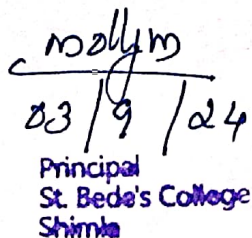 03/9/24
Principal
St. Bede's College
Shimla